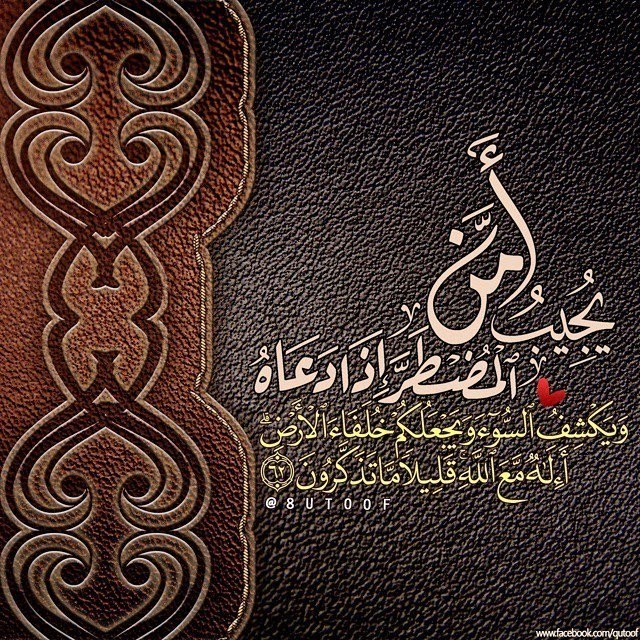 أَمَّن
يُجِيبُ
ٱلْمُضْطَرَّ إِذَا دَعَاهُ
وَيَكْشِفُ ٱلسُّوٓءَ وَيَجْعَلُكُمْ خُلَفَآءَ ٱلْأَرْضِ ۗ
أَءِلَٰهٌ مَّعَ ٱللَّهِ ۚ قَلِيلًا مَّا تَذَكَّرُونَ ٦٢
@8UTOOF
www.facebook.com/qutoof